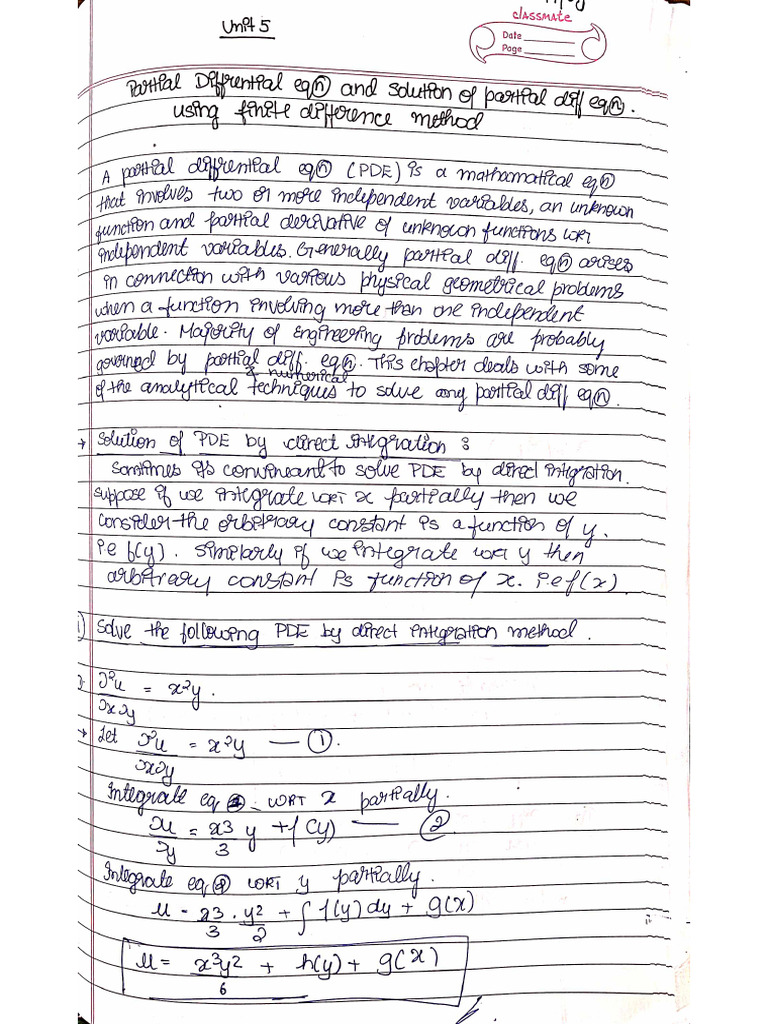 Unit 5
classmate
Date
Page
Partial Diffrential eqⓝ and solution of partial diff eqⓝ.
using finite difference method
A partial diffrential eqⓝ (PDE) is a mathamatical eqⓝ
that involves two or more independent variables, an unknown
function and partial derivative of unknown functions wrt
independent variables. Generally partial diff. eqⓝ arises
in connection with various physical geometrical problems
when a function involving more than one independent
variable. Majority of Engineering problems are probably
governed by partial diff. eqⓝ. This chapter deals with some
& numerical
of the analytical techniques to solve any partial diff eqⓝ.
→ Solution of PDE by direct integration :
Somtimes its convineant to solve PDE by direct integration.
suppose if we integrate wrt x partially then we
consider the orbitrary constant is a function of y.
i.e f(y). similarly if we integrate wrt y then
arbitrary constant is function of x. i.e f(x).
1) Solve the following PDE by direct integration method.
∂²u/∂x∂y = x²y.
→ Let ∂²u/∂x∂y = x²y — ①.
Integrate eq wrt x partially.
∂u/∂y = x³/3 y + f(y) — ②
Integrate eq ② wrt y partially.
u = x³/3 . y²/2 + ∫ f(y) dy + g(x)
u = x³y²/6 + h(y) + g(x)